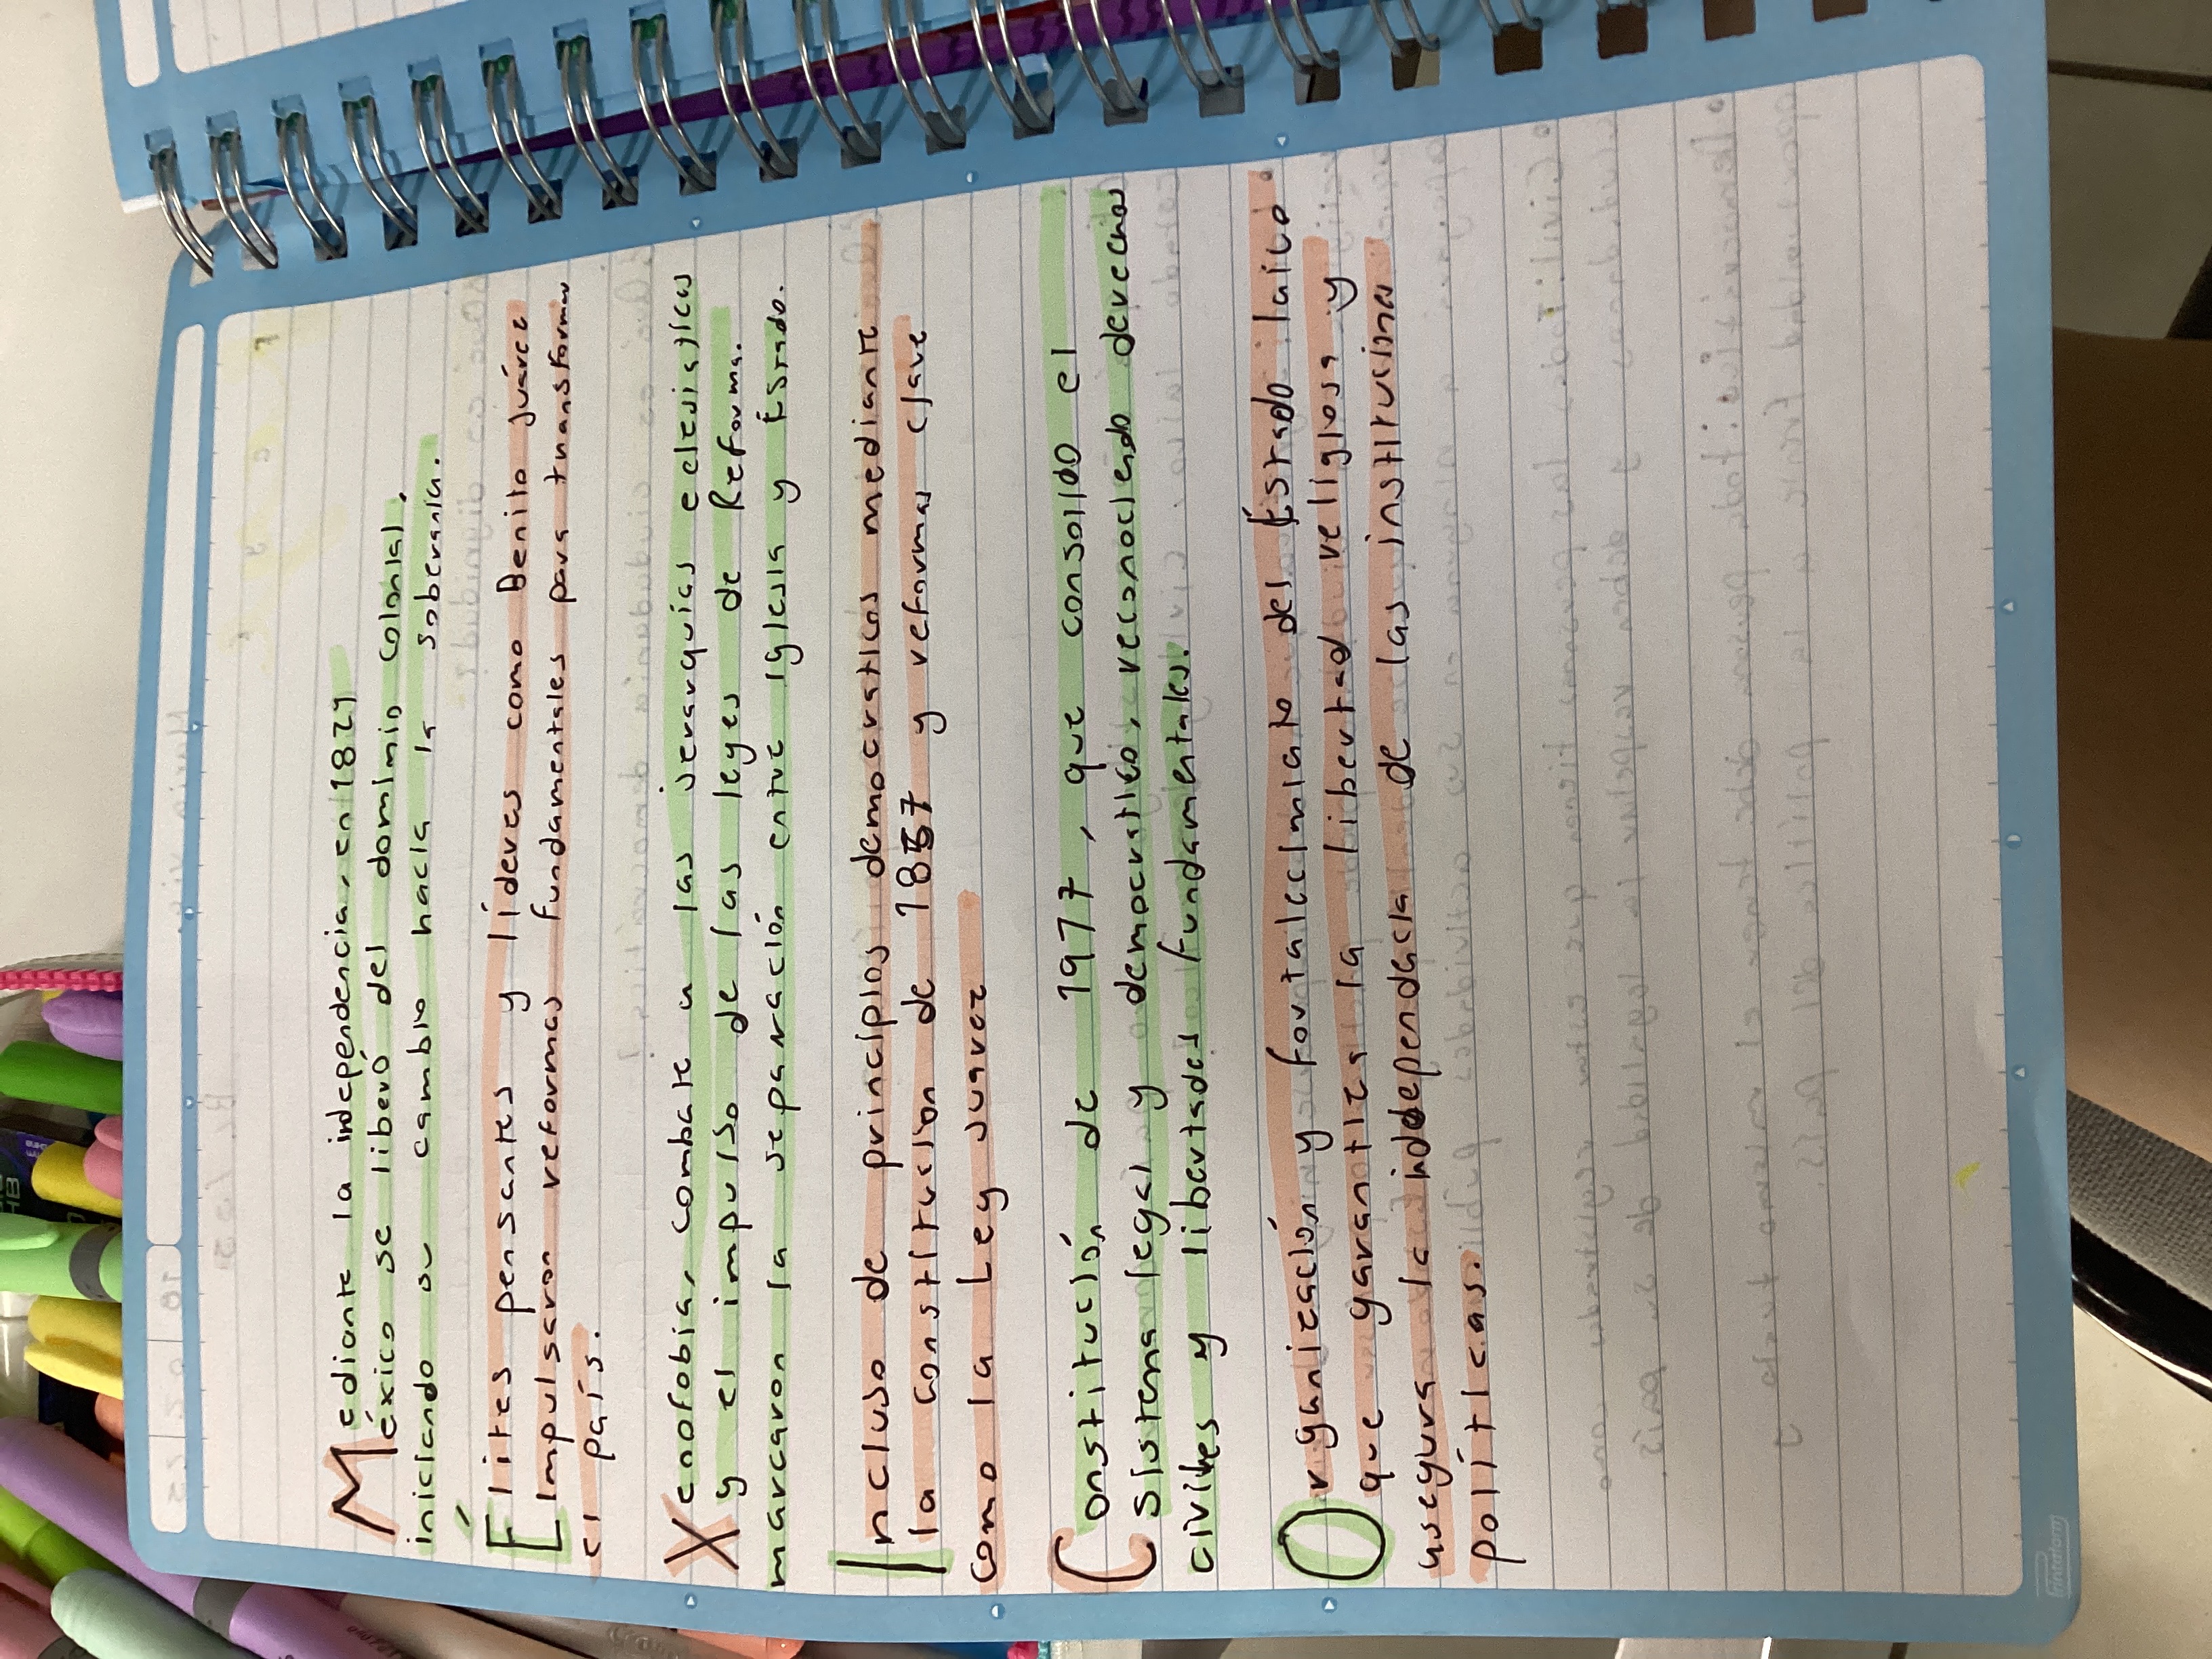 Mediante la independencia, en 1824
México se liberó del dominio colonial,
iniciando su cambio hacia la soberanía.
Élites pensantes y líderes como Benito Juárez
Impulsaron reformas fundamentales para transformar
el país.
Xenofobia, combate a las jerarquías eclesiáticas
y el impulso de las leyes de Reforma.
marcaron la separación entre Iglesia y Estado.
Incluso de principios democraticos mediante
la constitución de 1857 y reformas clave
como la Ley Juarez
Constitución de 1977, que consolido el
sistema legal y democratico, reconociendo derechos
civiles y libertades fundamentales.
Organización y fortalecimiato del Estado laico
que garantiza la libertad religiosa y
asegura la independencia de las instituciones
políticas.